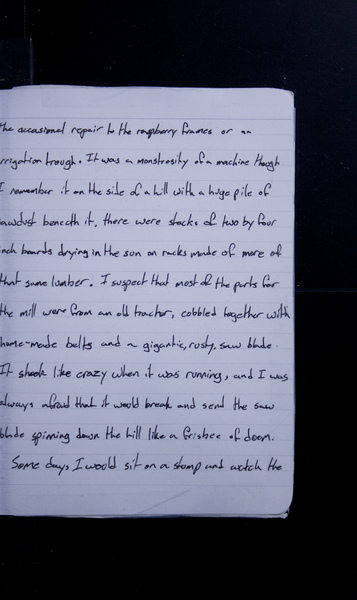 the occasional repair to the raspberry frames or an
irrigation trough. It was a monstrosity of a machine though
I remember it on the side of a hill with a huge pile of
sawdust beneath it, there were stacks of two by four
inch boards drying in the sun on racks made of more of
that same lumber. I suspect that most of the parts for
the mill were from an old tractor, cobbled together with
home-made belts and a gigantic, rusty, saw blade.
It shook like crazy when it was running, and I was
always afraid that it would break and send the saw
blade spinning down the hill like a frisbee of doom.
Some days I would sit on a stump and watch the